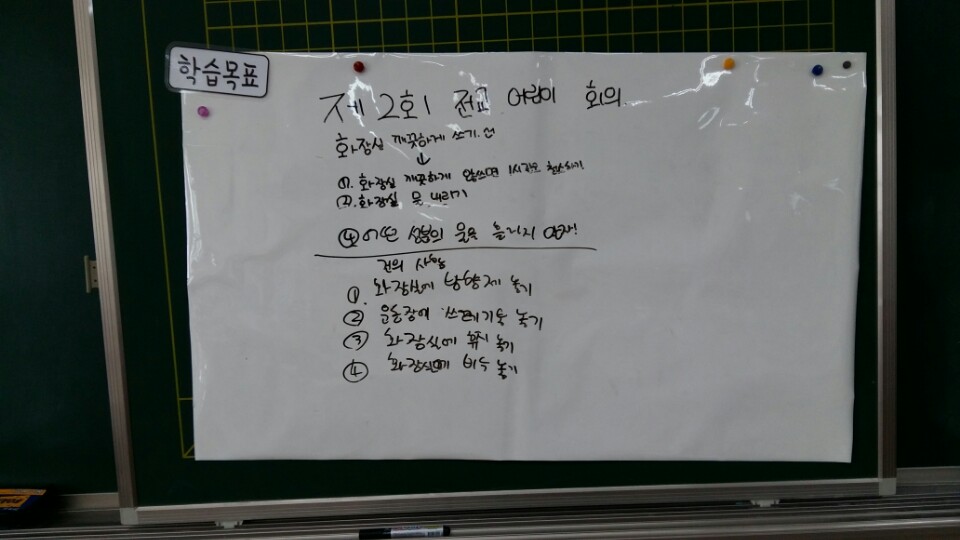 학습목표
제 2회 전교 어린이 회의
화장실 깨끗하게 쓰기
↓
①. 화장실 깨끗하게 않쓰면 1시간 청소하기
②. 화장실 물 내리기
④
건의 사항
①. 화장실에 방향제 놓기
② 운동장에 쓰레기통 놓기
③ 화장실에 휴지 놓기
④ 화장실에 비누 놓기